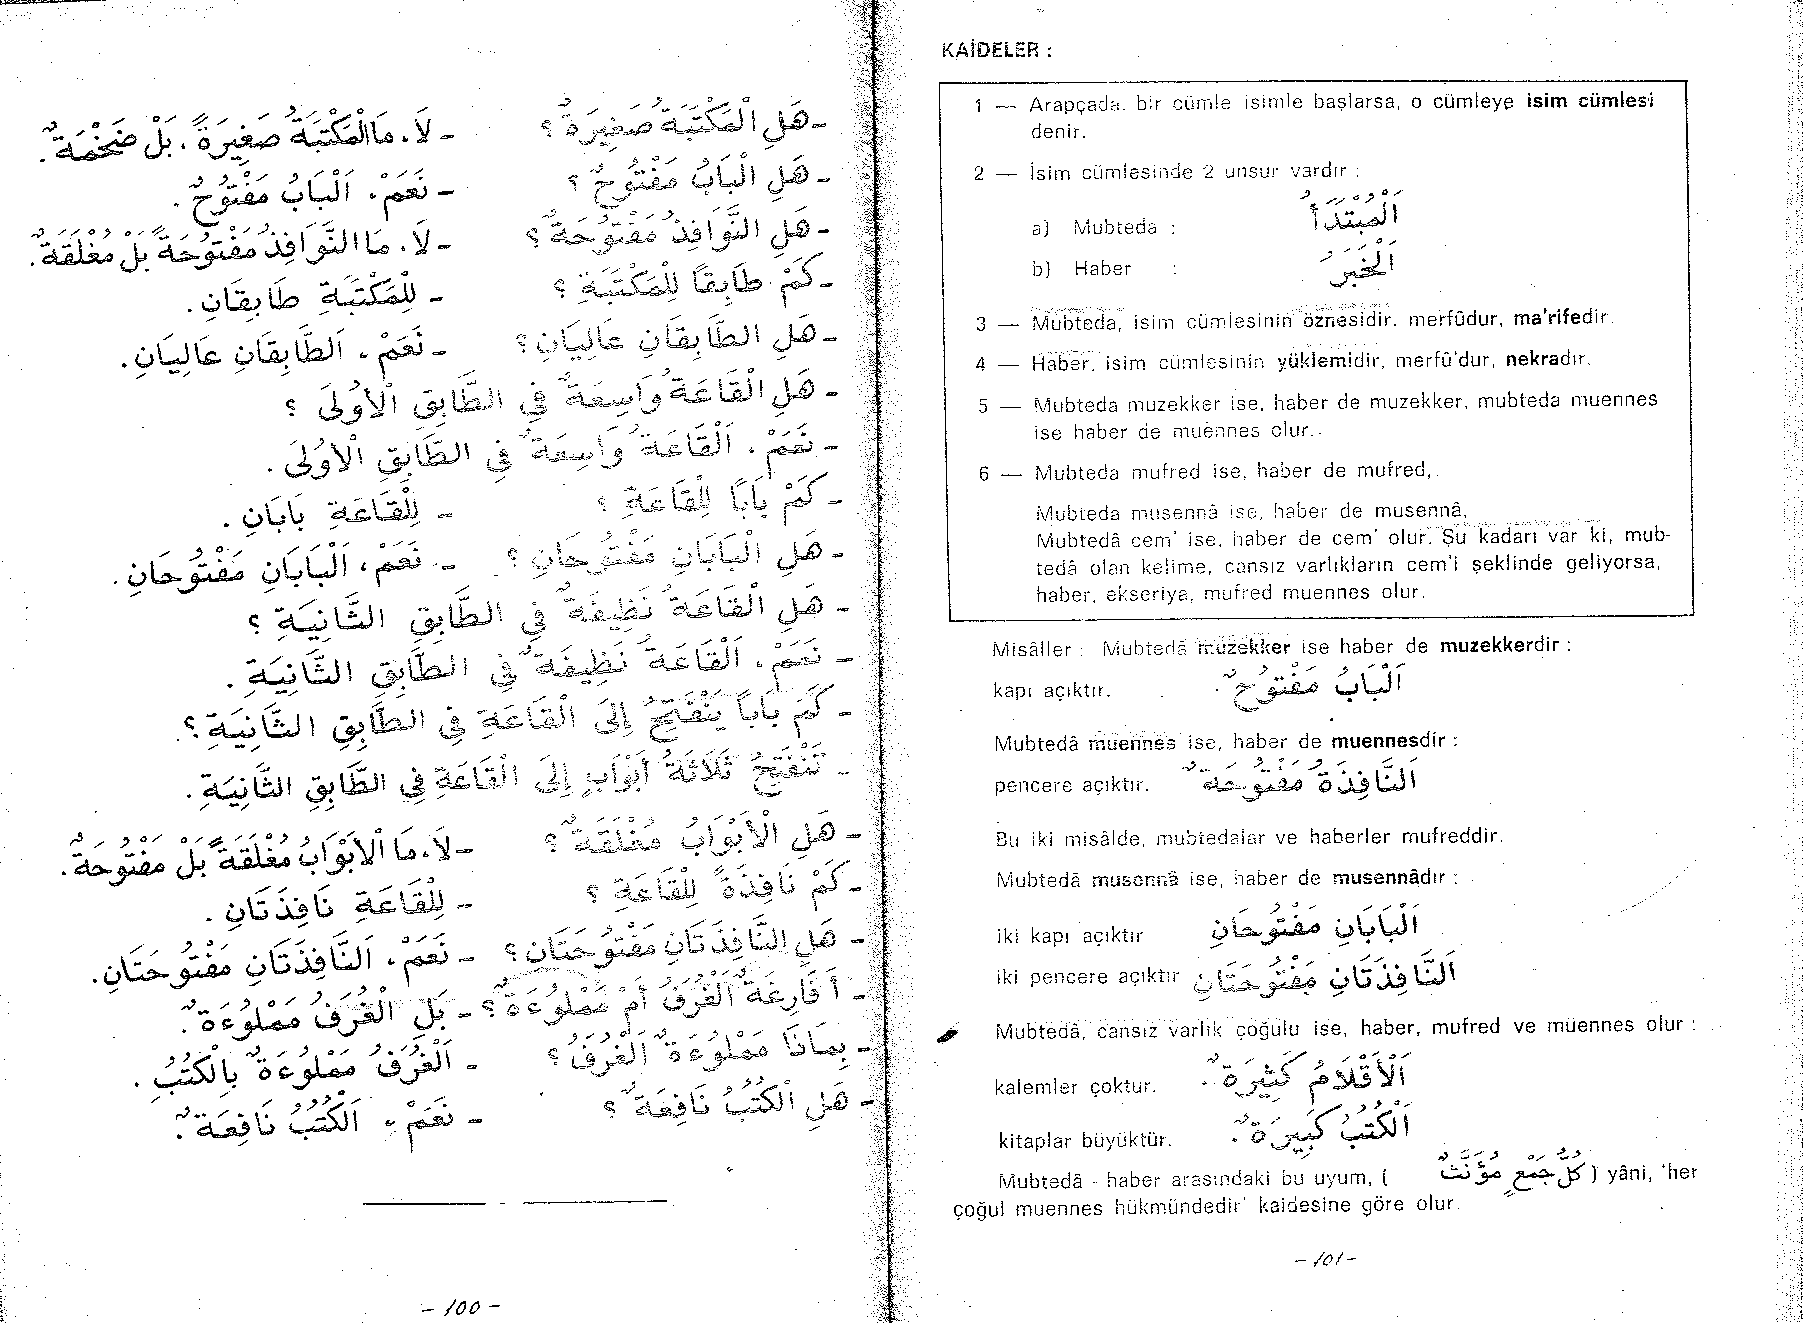 - هَلِ الْمَكْتَبَةُ صَغِيرَةٌ؟ - لَا، مَا الْمَكْتَبَةُ صَغِيرَةً، بَلْ ضَخْمَةٌ.
- هَلِ الْبَابُ مَفْتُوحٌ؟ - نَعَمْ، اَلْبَابُ مَفْتُوحٌ.
- هَلِ النَّوَافِذُ مَفْتُوحَةٌ؟ - لَا، مَا النَّوَافِذُ مَفْتُوحَةً بَلْ مُغْلَقَةٌ.
- كَمْ طَابِقًا لِلْمَكْتَبَةِ؟ - لِلْمَكْتَبَةِ طَابِقَانِ.
- هَلِ الطَّابِقَانِ عَالِيَانِ؟ - نَعَمْ، اَلطَّابِقَانِ عَالِيَانِ.
- هَلِ الْقَاعَةُ وَاسِعَةٌ فِي الطَّابِقِ الْاُولَى؟
- نَعَمْ، اَلْقَاعَةُ وَاسِعَةٌ فِي الطَّابِقِ الْاُولَى.
- كَمْ بَابًا لِلْقَاعَةِ؟ - لِلْقَاعَةِ بَابَانِ.
- هَلِ الْبَابَانِ مَفْتُوحَانِ؟ - نَعَمْ، اَلْبَابَانِ مَفْتُوحَانِ.
- هَلِ الْقَاعَةُ نَظِيفَةٌ فِي الطَّابِقِ الثَّانِيَةِ؟
- نَعَمْ، اَلْقَاعَةُ نَظِيفَةٌ فِي الطَّابِقِ الثَّانِيَةِ.
- كَمْ بَابًا يَنْفَتِحُ إِلَى الْقَاعَةِ فِي الطَّابِقِ الثَّانِيَةِ؟
- تَنْفَتِحُ ثَلَاثَةُ أَبْوَابٍ إِلَى الْقَاعَةِ فِي الطَّابِقِ الثَّانِيَةِ.
- هَلِ الْأَبْوَابُ مُغْلَقَةٌ؟ - لَا، مَا الْأَبْوَابُ مُغْلَقَةً بَلْ مَفْتُوحَةٌ.
- كَمْ نَافِذَةً لِلْقَاعَةِ؟ - لِلْقَاعَةِ نَافِذَتَانِ.
- هَلِ النَّافِذَتَانِ مَفْتُوحَتَانِ؟ - نَعَمْ، اَلنَّافِذَتَانِ مَفْتُوحَتَانِ.
- أَفَارِغَةٌ الْغُرَفُ أَمْ مَمْلُوءَةٌ؟ - بَلِ الْغُرَفُ مَمْلُوءَةٌ.
- بِمَاذَا مَمْلُوءَةٌ الْغُرَفُ؟ - اَلْغُرَفُ مَمْلُوءَةٌ بِالْكُتُبِ.
- هَلِ الْكُتُبُ نَافِعَةٌ؟ - نَعَمْ، اَلْكُتُبُ نَافِعَةٌ.
- 100 -
KAİDELER :
1 — Arapçada, bir cümle isimle başlarsa, o cümleye isim cümlesi
denir.
2 — İsim cümlesinde 2 unsur vardır :
a) Mubteda : اَلْمُبْتَدَأُ
b) Haber : اَلْخَبَرُ
3 — Mubteda, isim cümlesinin öznesidir, merfûdur, ma'rifedir.
4 — Haber, isim cümlesinin yüklemidir, merfû'dur, nekradır.
5 — Mubteda muzekker ise, haber de muzekker, mubteda muennes
ise haber de muennes olur.
6 — Mubteda mufred ise, haber de mufred,
Mubteda musennâ ise, haber de musennâ,
Mubtedâ cem' ise, haber de cem' olur. Şu kadarı var ki, mub-
tedâ olan kelime, cansız varlıkların cem'i şeklinde geliyorsa,
haber, ekseriya, mufred muennes olur.
Misâller : Mubtedâ muzekker ise haber de muzekkerdir :
kapı açıktır. اَلْبَابُ مَفْتُوحٌ.
Mubtedâ muennes ise, haber de muennesdir :
pencere açıktır. اَلنَّافِذَةُ مَفْتُوحَةٌ
Bu iki misâlde, mubtedalar ve haberler mufreddir.
Mubtedâ musennâ ise, haber de musennâdır :
iki kapı açıktır اَلْبَابَانِ مَفْتُوحَانِ
iki pencere açıktır اَلنَّافِذَتَانِ مَفْتُوحَتَانِ
Mubtedâ, cansız varlık çoğulu ise, haber, mufred ve muennes olur :
kalemler çoktur. اَلْأَقْلَامُ كَثِيرَةٌ.
kitaplar büyüktür. اَلْكُتُبُ كَبِيرَةٌ.
Mubtedâ - haber arasındaki bu uyum, ( كُلُّ جَمْعٍ مُؤَنَّثٌ ) yâni, 'her
çoğul muennes hükmündedir' kaidesine göre olur.
- 101 -